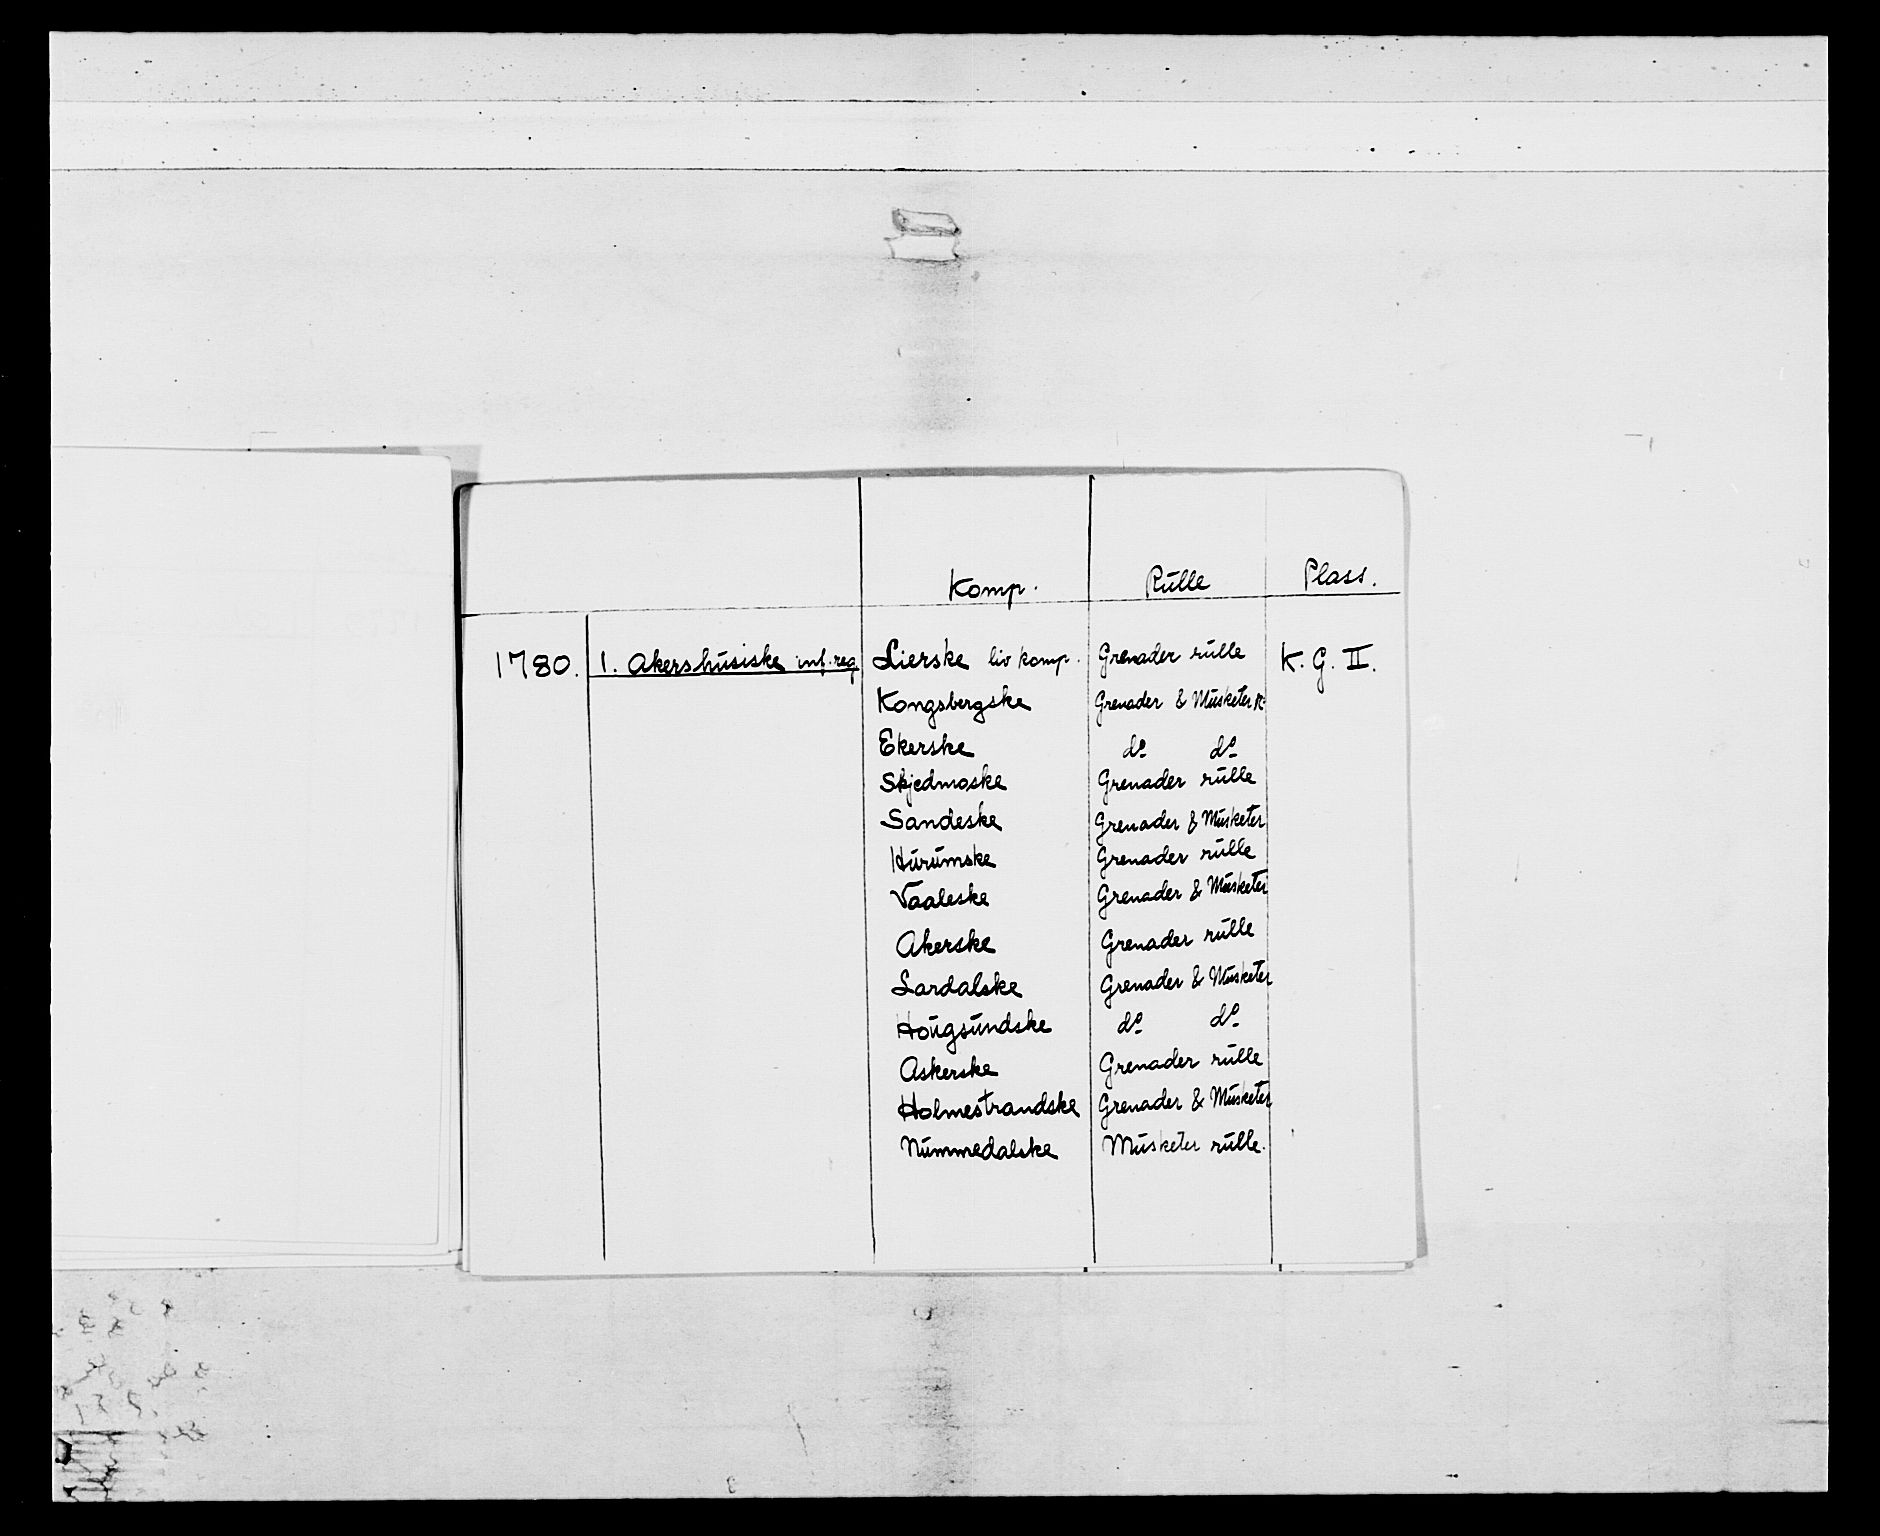 Komp. Rulle Plass.
1780. 1. Akershusiske inf. reg. Lierske liv komp. Grenader rulle K. G. II.
Kongsbergske Grenader & Musketer R.
Ekerske do do
Skjedmoske Grenader rulle
Sandeske Grenader & Musketer
Hurumske Grenader rulle
Vaaleske Grenader & Musketer
Akerske Grenader rulle
Lardalske Grenader & Musketer
Hougsundske do do
Askerske Grenader rulle
Holmestrandske Grenader & Musketer
Nummedalske Musketer rulle.